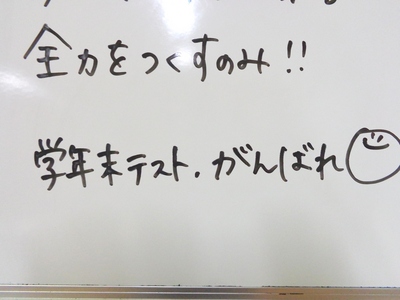 全力をつくすのみ!!
学年末テスト.がんばれ